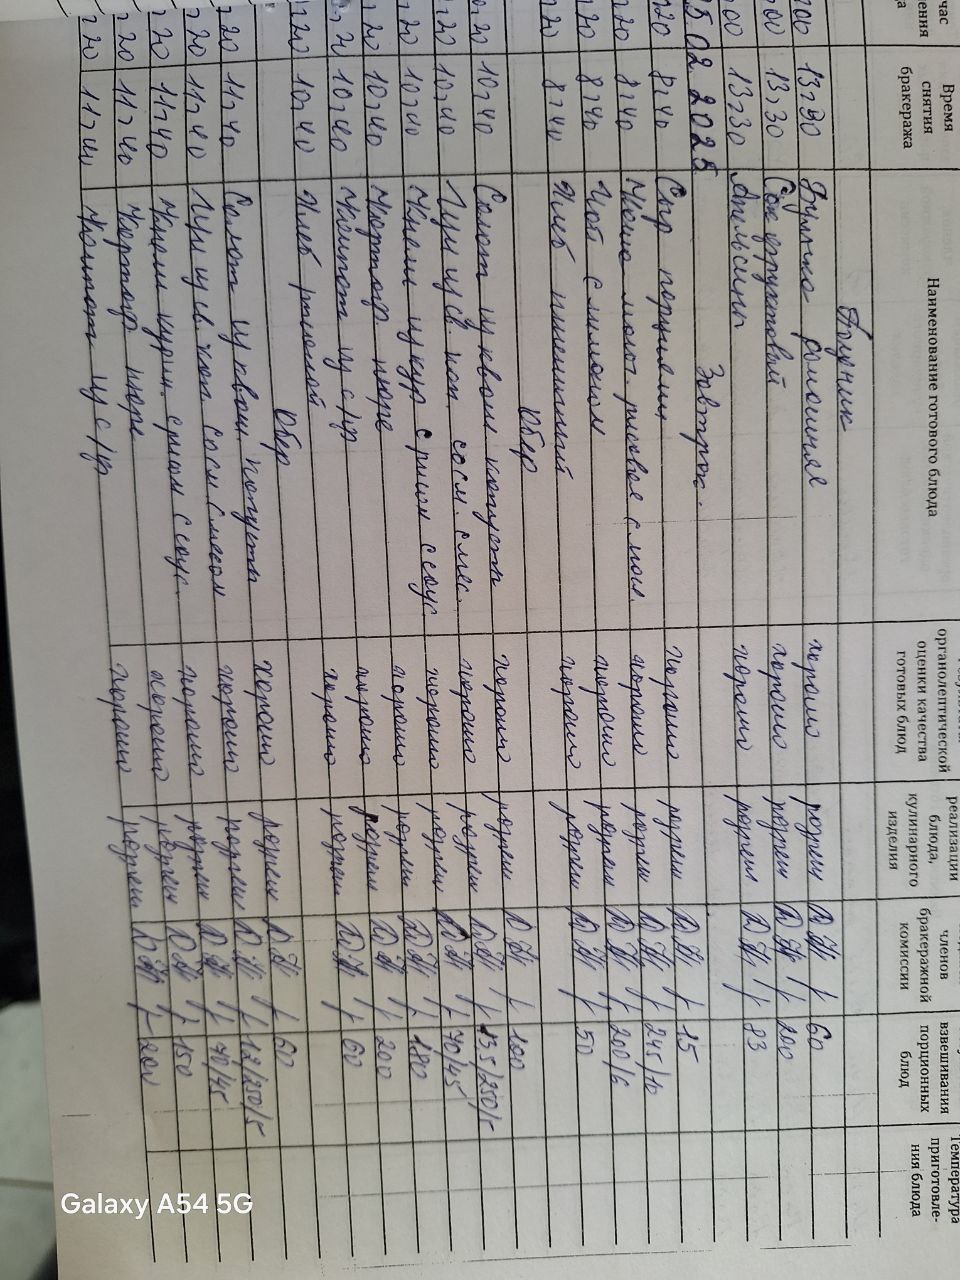 час
Время снятия бракеража
Наименование готового блюда
органолептической оценки качества готовых блюд
реализации блюда, кулинарного изделия
членов бракеражной комиссии
взвешивания порционных блюд
Температура приготовления блюда
Полдник
00 13-30 Булочка домашняя хорошо разрешен 60
00 13-30 Сок фруктовый хорошо разрешен 200
00 13-30 Апельсины хорошо разрешен
5.02.2025 Завтрак.
20 8-40 Сыр порциями хорошо разрешен 15
20 8-40 Каша молоч. рисовая с мол. хорошо разрешен 245/10
20 8-40 Чай с лимоном хорошо разрешен 200/6
20 8-40 Хлеб пшеничный хорошо разрешен 50
Обед
20 10-40 Салат из кваш капусты хорошо разрешен 100
20 10-40 Щи из св. кап. со см. с мяс. хорошо разрешен /250/5
20 10-40 из кур с рисом с соус хорошо разрешен 70/45
20 10-40 Картоф. пюре хорошо разрешен 180
20 10-40 Компот из с/ф хорошо разрешен 200
20 10-40 Хлеб ржаной хорошо разрешен 60
Обед
20 11-40 Салат из кваш. капусты хорошо разрешен 60
20 11-40 Щи из св. кап со см с мясом хорошо разрешен 12/250/5
20 11-40 курин. с рисом с соус. хорошо разрешен 70/45
20 11-40 Картоф. пюре хорошо разрешен 150
20 11-40 Компот из с/ф хорошо разрешен 200
Galaxy A54 5G